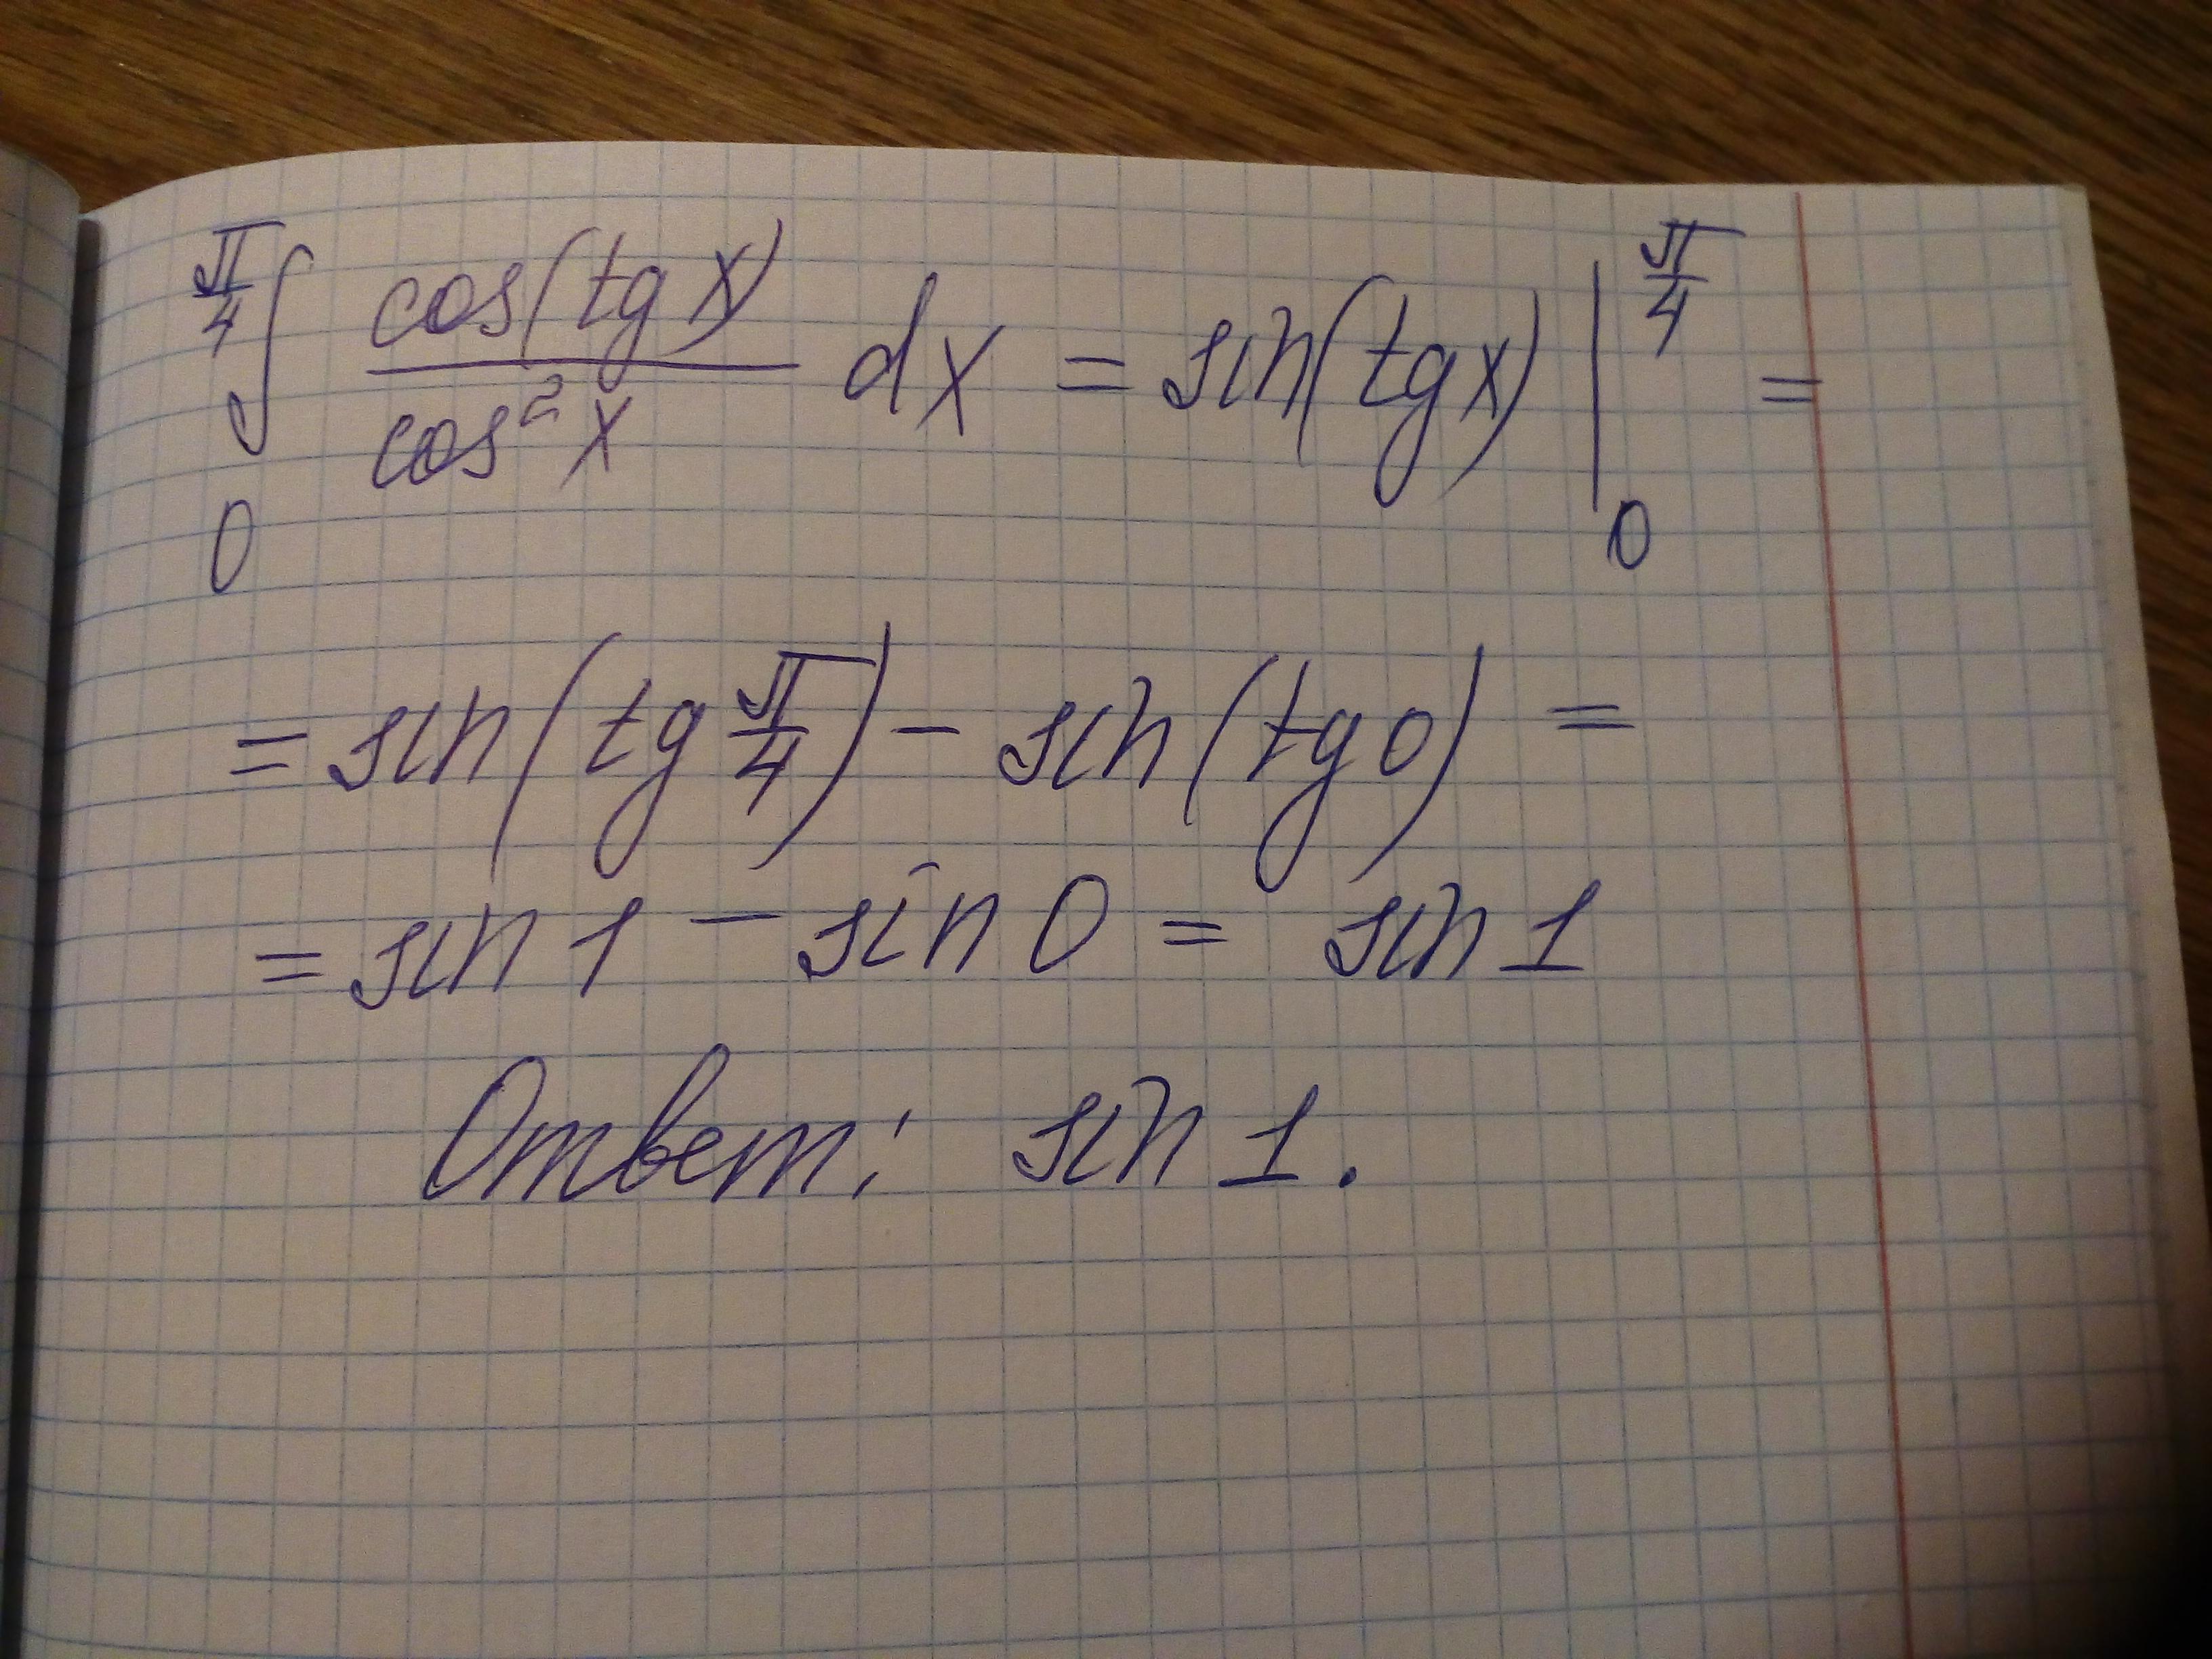 ∫₀^{π/4} cos(tg x)/cos² x dx = sin(tg x) |₀^{π/4} =
= sin(tg π/4) − sin(tg 0) =
= sin 1 − sin 0 = sin 1
Ответ: sin 1.